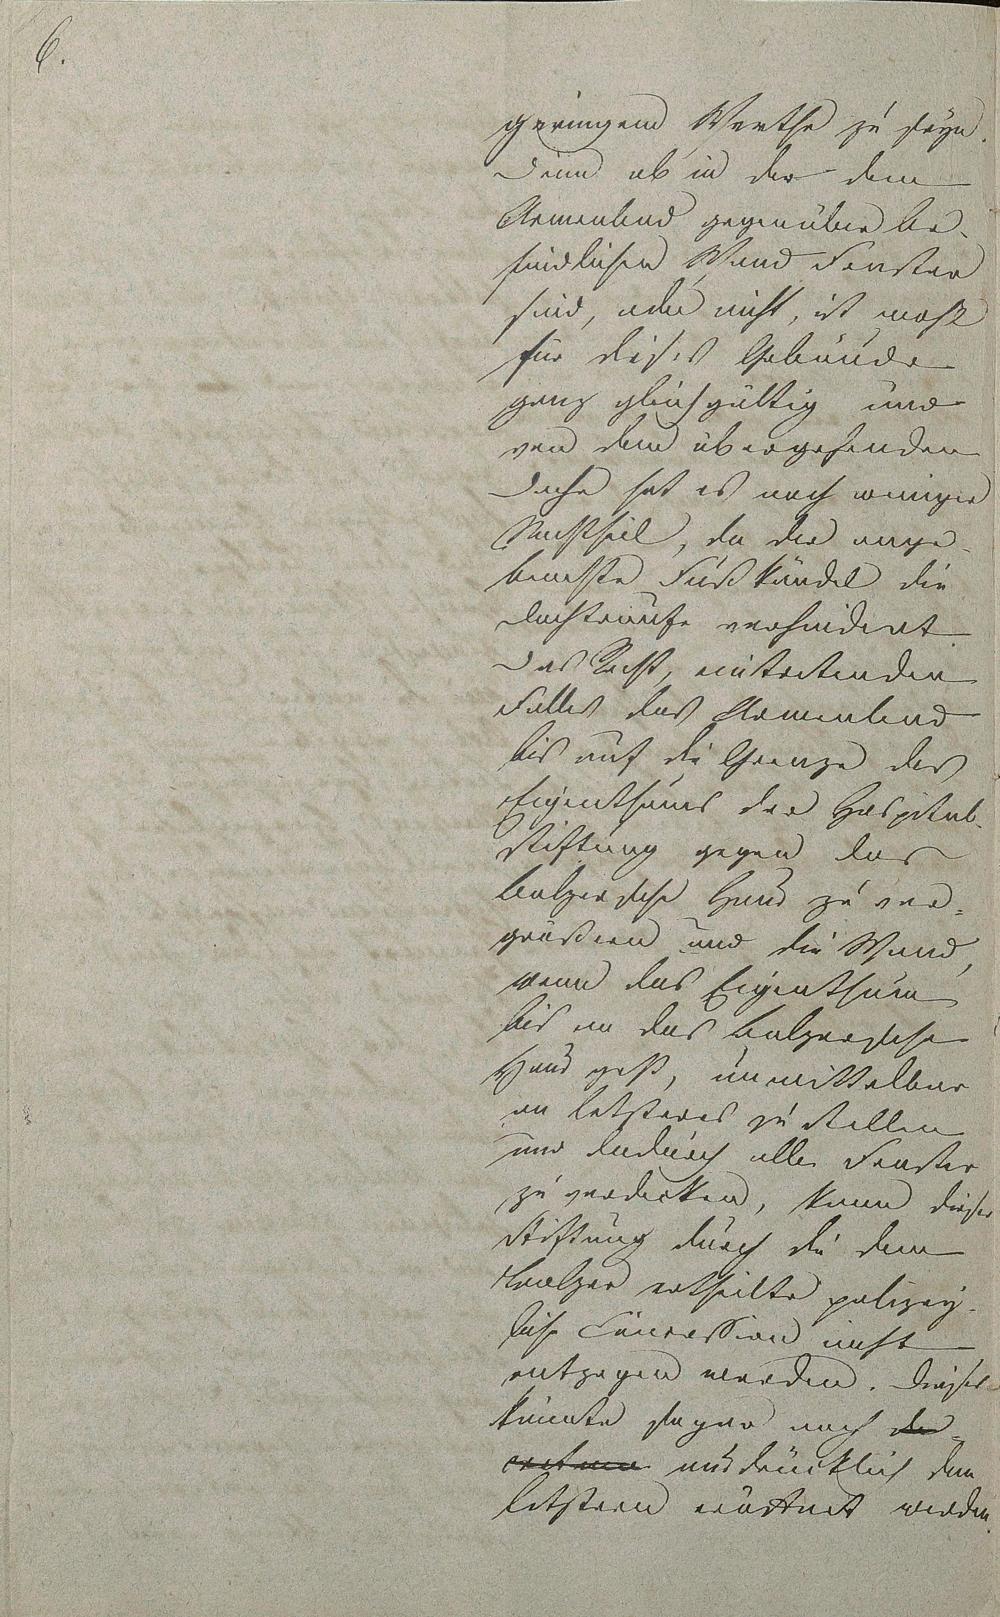 6.
geringem Werthe zu seyn.
Denn ob in der dem
Armenbad gegenüber be-
findlichen Wand Fenster
sind, oder nicht, ist wohl
für dieses Gebäude
ganz gleichgültig und
von dem übergehenden
Dache hat es noch weniger
Nachtheil, da der ange-
brachte Fußkändel die
Dachtraufe verhindert.
Das Recht, eintretenden
Falles das Armenbad
bis auf die Grenze des
Eigenthums der Hospital-
stiftung gegen das
Balzersche Haus zu ver-
größern und die Wand,
wenn das Eigenthum
bis an das Balzersche
Haus geht, unmittelbar
an letzteres zu stellen
und dadurch alle Fenster
zu verdecken, kann dieser
Stiftung durch die dem
Balzer ertheilte polizey-
liche Concession nicht
entzogen werden. Dieses
könnte sogar noch
ausdrücklich dem
letzteren eröffnet werden.